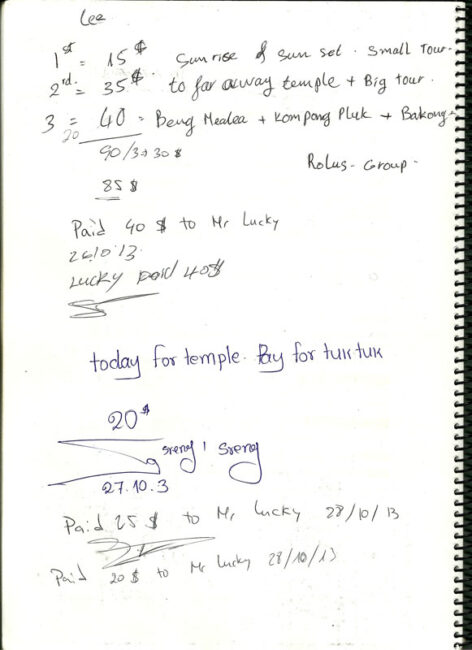 Lee
1st = 15$ Sunrise & sun set. Small Tour.
2nd. = 35$. to far away temple + Big tour.
3 = 40 = Beng Mealea + Kompong Pluk + Bakong
20
90/3→30$
Rolus-Group.
85$
Paid 40$ to Mr Lucky
26.10.13.
Lucky paid 40$
today for temple. Pay for tuk tuk
20$
sreng! Sreng
27.10.3
Paid 25$ to Mr Lucky 28/10/13
Paid 20$ to Mr Lucky 28/10/13